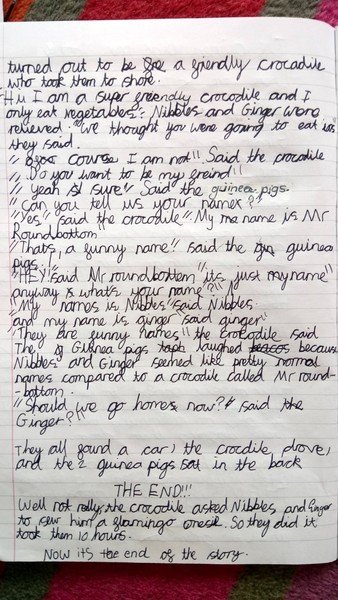 turned out to be a friendly crocodile
who took them to shore.
"Hi I am a super freendly crocodile and I
only eat vegetables". Nibbles and Ginger were
relieved. "We thought you were going to eat us"
they said.
"Of course I am not!" Said the crocodile
"Do you want to be my freind!"
"Yeah is sure" Said the guinea pigs.
"Can you tell us your names?"
"Yes" said the crocodile "My me name is Mr
Roundbottom"
"Thats, a funny name" said the guinea
pigs.
"HEY! said Mr roundbottom "its just my name"
anyway is whats your name?"
"My names is Nibbles" said Nibbles.
and my name is ginger" said ginger"
"They are funny names" the crocodile said
The Guinea pigs laughed because
Nibbles and Ginger seemed like pretty normal
names compared to a crocodile called Mr round-
-bottom.
"Should we go homes now?" said the
Ginger?
They all found a car, the crocdile drove,
and the 2 guinea pigs sat in the back
THE END!!!
Well not relly, the crocodile asked Nibbles and Ginger
to sew him a flamingo onesie. So they did it
took them 10 hours.
Now its the end of the story.